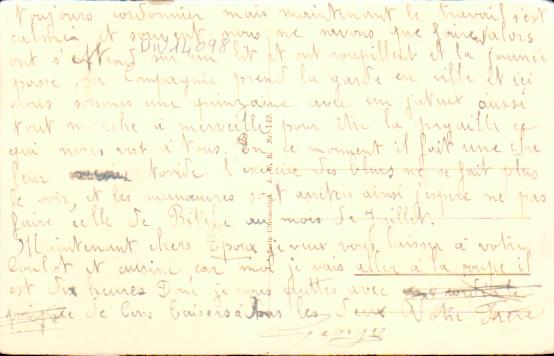 toujours cordonnier mais maintenant le travail s'est
calmé et souvent nous ne savons que faire, alors
DIV14098
ont s'etend sur un lit et ont roupillent et la journée
passe, la Compagnie prend la garde en ville et ici
nous sommes une quinzaine avec un juteux aussi
tout marche à merveille pour être la pagaille ce
qui nous vat à tous. En ce moment il fait une cha
leur torride l'exercice des bleus ne se fait plus
le soir, et les manœuvres sont arrêtés ainsi j'espère ne pas
faire celle de Bitche au mois de Juillet.
Maintenant chers Epoux je veux vous laisser à votre
boulot et cuisine car moi je vais aller à la soupe il
est six heures Donc je vous quittes avec
de bons baisers à tous les deux Votre Frère
Georges